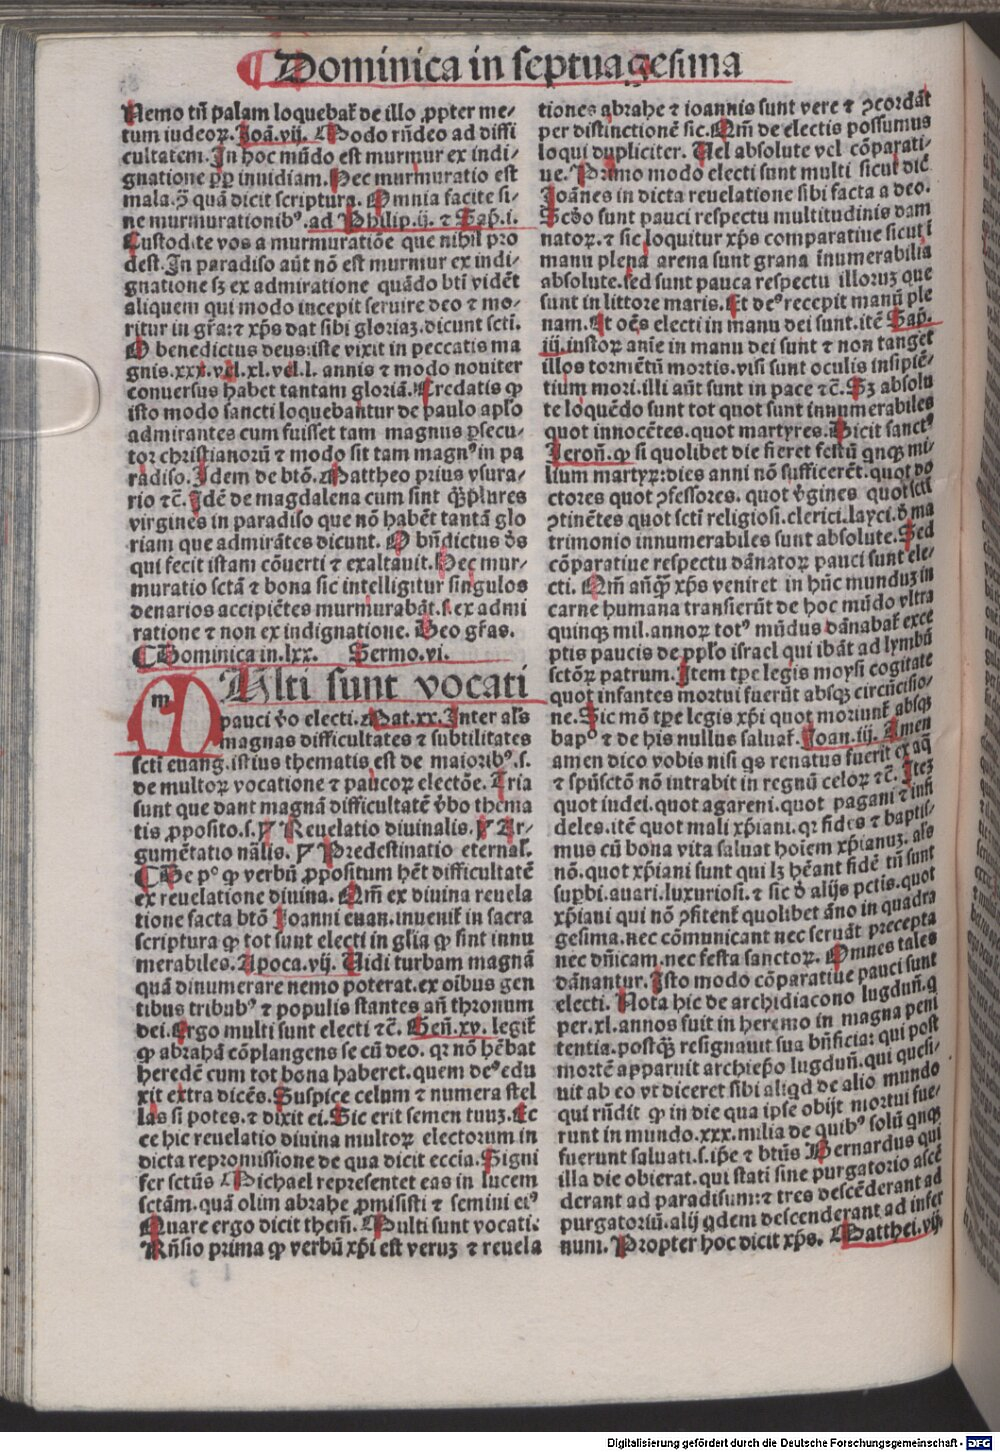 Dominica in septuagesima
Nemo tñ palam loquebat̃ de illo ꝓpter me⸗
tum iudeoꝝ. Joã. vij. Modo rñdeo ad diffi
cultatem. In hoc mũdo est murmur ex indi⸗
gnatione ꝓp̃ inuidiam. Hec murmuratio est
mala. ꝓ̃ quã dicit scriptura. Omnia facite si⸗
ne murmurationibꝰ. ad Philip. ij. ⁊ Sap̃. i.
Custodite vos a murmuratiõe que nihil pro
dest. In paradiso aũt nõ est murmur ex indi⸗
gnatione sꝫ ex admiratione quãdo bt̃i vidẽt
aliquem qui modo incepit seruire deo ⁊ mo⸗
ritur in gr̃a: ⁊ xp̃s dat sibi gloriaꝫ. dicunt sct̃i.
O benedictus deus: iste vixit in peccatis ma
gnis. xxx. vel. xl. vel. l. annis ⁊ modo nouiter
conuersus habet tantam gloriã. Credatis ꝙ
isto modo sancti loquebantur de paulo apl̃o
admirantes cum fuisset tam magnus ꝑsecu⸗
tor christianorũ ⁊ modo sit tam magnꝰ in pa
radiso. Idem de btõ. Mattheo prius vsura⸗
rio ⁊c̃. Idẽ de magdalena cum sint qᷓ̃plures
virgines in paradiso que nõ habẽt tantã glo
riam que admirãtes dicunt. O bñdictus dẽs
qui fecit istam cõuerti ⁊ exaltauit. Hec mur⸗
muratio sctã ⁊ bona sic intelligitur singulos
denarios accipiẽtes murmurabãt. s. ex admi
ratione ⁊ non ex indignatione. Deo gr̃as.
Dominica in. lxx. Sermo. vi.
m Ulti sunt vocati
pauci ṽo electi. Mat. xx. Inter al̃s
magnas difficultates ⁊ subtilitates
sct̃i euang. istius thematis est de maioribꝰ. s.
de multoꝝ vocatione ⁊ paucoꝝ electõe. Tria
sunt que dant magnã difficultatẽ ṽbo thema
tis ꝓposito. s. Reuelatio diuinalis. Ar⸗
gumẽtatio nãlis. Predestinatio eternal̃.
De pº ꝙ verbũ ꝓpositum hẽt difficultatẽ
ex reuelatione diuina. Qm̃ ex diuina reuela
tione facta btõ Joanni euan. inuenit̃ in sacra
scriptura ꝙ tot sunt electi in gl̃ia ꝙ sint innu
merabiles. Apoca. vij. Uidi turbam magnã
quã dinumerare nemo poterat. ex oĩbus gen
tibus tribubꝰ ⁊ populis stantes añ thronum
dei. Ergo multi sunt electi ⁊c̃. Geñ. xv. legit̃
ꝙ abrahã cõplangens se cũ deo. qꝛ nõ hẽbat
heredẽ cum tot bona haberet. quem deꝰ edu
xit extra dicẽs. Suspice celum ⁊ numera stel
las si potes. ⁊ dixit ei. Sic erit semen tuuꝫ. Ec
ce hic reuelatio diuina multoꝝ electorum in
dicta repromissione de qua dicit eccĩa. Signi
fer sctũs Michael representet eas in lucem
sctãm. quã olim abrahe ꝓmisisti ⁊ semini eiꝰ
Quare ergo dicit them̃. Multi sunt vocati.
Rñsio prima ꝙ verbũ xp̃i est veruꝫ ⁊ reuela
tiones abrahe ⁊ ioannis sunt vere ⁊ ꝯcordãt
per distinctionẽ sic. Qm̃ de electis possumus
loqui dupliciter. Uel absolute vel cõparati⸗
ue. Primo modo electi sunt multi sicut dic̃
Joãnes in dicta reuelatione sibi facta a deo.
Scḋo sunt pauci respectu multitudinis dam
natoꝝ. ⁊ sic loquitur xp̃s comparatiue sicut ĩ
manu plena arena sunt grana innumerabilia
absolute. sed sunt pauca respectu illoruꝫ que
sunt in littore maris. Et deꝰ recepit manũ ple
nam. Et oẽs electi in manu dei sunt. itẽ Sap̃.
iij. iustoꝝ anĩe in manu dei sunt ⁊ non tanget
illos tormẽtũ mortis. visi sunt oculis insipiẽ⸗
tium mori. illi aũt sunt in pace ⁊c̃. Sꝫ absolu
te loquẽdo sunt tot quot sunt innumerabiles
quot innocẽtes. quot martyres. Dicit sanctꝰ
Jeroñ. ꝙ si quolibet die fieret festũ qnqꝫ mi⸗
lium martyꝝ: dies anni nõ sufficerẽt. quot do
ctores quot ꝯfessores. quot ṽgines quot sct̃i
ꝯtinẽtes quot sct̃i religiosi. clerici. layci. ḋ ma
trimonio innumerabiles sunt absolute. Sed
cõparatiue respectu dãnatoꝝ pauci sunt ele⸗
cti. Qm̃ añqᷓ̃ xp̃s veniret in hũc munduꝫ in
carne humana transierũt de hoc mũdo vltra
quinqꝫ mil. annoꝝ totꝰ mũdus dãnabat̃ exce
ptis paucis de pp̃lo israel qui ibãt ad lymbũ
sctõꝝ patrum. Item tꝑe legis moysi cogitate
quot infantes mortui fuerũt absqꝫ circũcisio⸗
ne. Sic mõ tꝑe legis xp̃i quot moriunt̃ absqꝫ
bapº ⁊ de his nullus saluat̃. Joan. iij. Amen
amen dico vobis nisi qs renatus fuerit ex aq̃
⁊ spũsctõ nõ intrabit in regnũ celoꝝ ⁊c̃. Iteꝫ
quot iudei. quot agareni. quot pagani ⁊ infi
deles. itẽ quot mali xp̃iani. qꝛ fides ⁊ baptis⸗
mus cũ bona vita saluat hoiem xp̃ianuꝫ. als̃
nõ. quot xp̃iani sunt qui lꝫ hẽant fidẽ tñ sunt
suꝑbi. auari. luxuriosi. ⁊ sic ḋ alijs pctis. quot
xp̃iani qui nõ ꝯfitent̃ quolibet ãno in quadra
gesima. nec cõmunicant nec seruãt precepta
nec dñicam. nec festa sanctoꝝ. Omnes tales
dãnantur. Isto modo cõparatiue pauci sunt
electi. Nota hic de archidiacono lugduñ. q
per. xl. annos fuit in heremo in magna peni
tentia. postqᷓ̃ resignauit sua bñficia: qui post
mortẽ apparuit archiep̃o lugduñ. qui quesi⸗
uit ab eo vt diceret sibi aliqd de alio mundo
qui rñdit ꝙ in die qua ipse obijt mortui fue⸗
runt in mundo. xxx. milia de quibꝰ solũ qnqꝫ
fuerunt saluati. s. ip̃e ⁊ btũs Bernardus qui
illa die obierat. qui stati sine purgatorio ascẽ
derant ad paradisum: ⁊ tres descẽderant ad
purgatoriũ. alij qdem descenderant ad infer
num. Propter hoc dicit xp̃s. Matthei. vij.
Digitalisierung gefördert durch die Deutsche Forschungsgemeinschaft - DFG